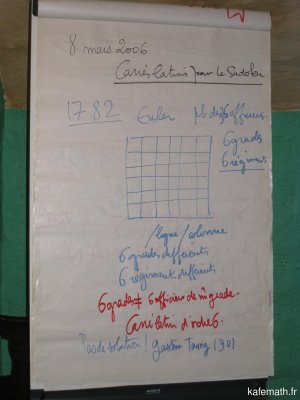 8 mars 2006
Carrés latins pour le Sudoku
1782 Euler Pb des 36 officiers
6 grades
6 régiments
/ligne/colonne
6 grades différents
6 régiments différents
6 grades ≠ 6 officiers de m̂ grade
Carré latin d'ordre 6
Pas de solution ! Gaston Tarry (90)
kafemath.fr